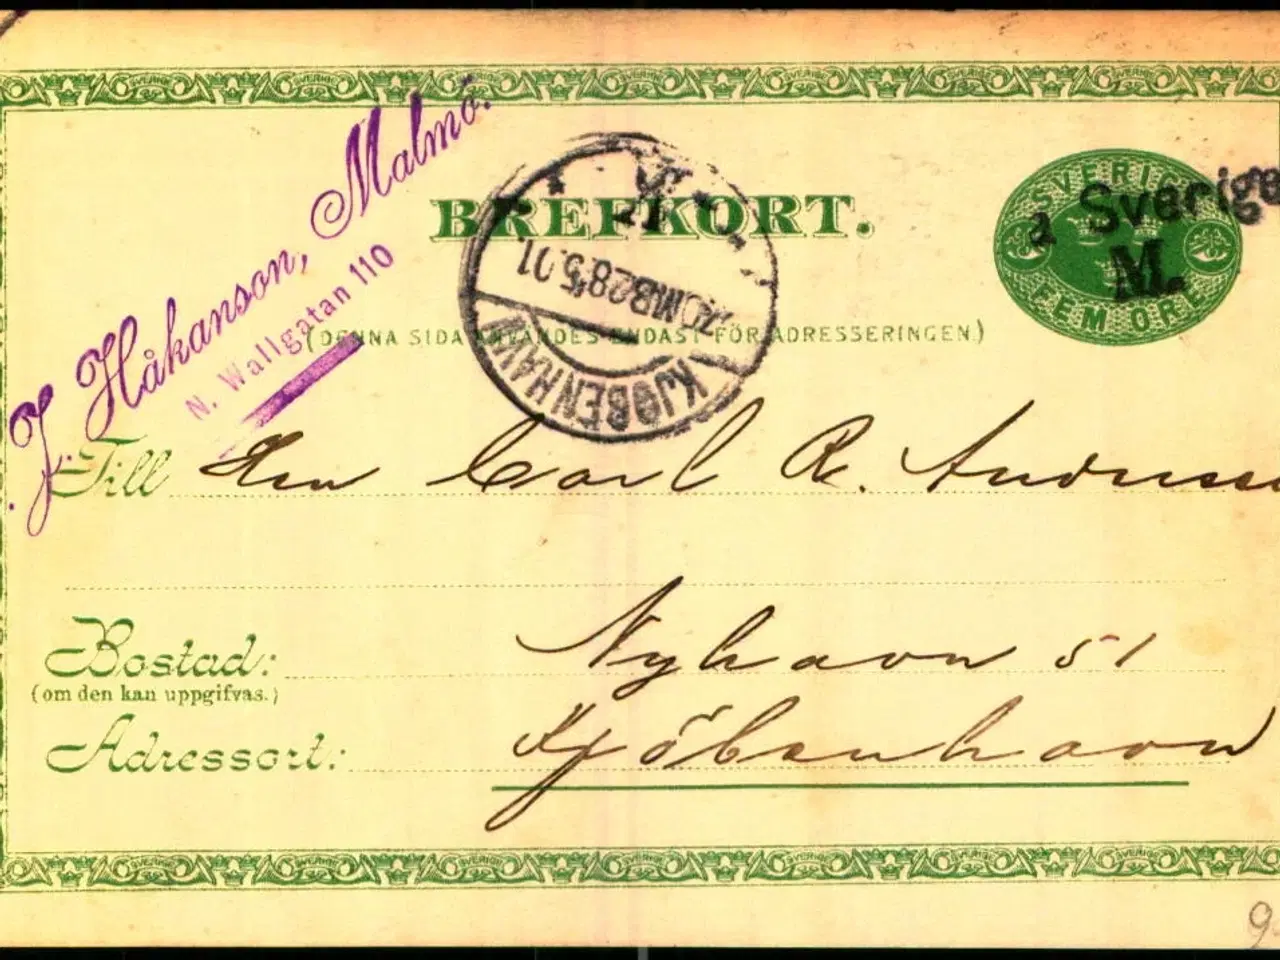 J. Håkanson, Malmö.
N. Wallgatan 110
BREFKORT.
SVERIGE
FEM ORE
a Sverige
M.
28.5.01
KJØBENHAVN
(DENNA SIDA ANVÄNDES ENDAST FÖR ADRESSERINGEN.)
Till Herr Carl R. Anderss
Bostad: Nyhavn 51
(om den kan uppgifvas.)
Adressort: Kjöbenhavn